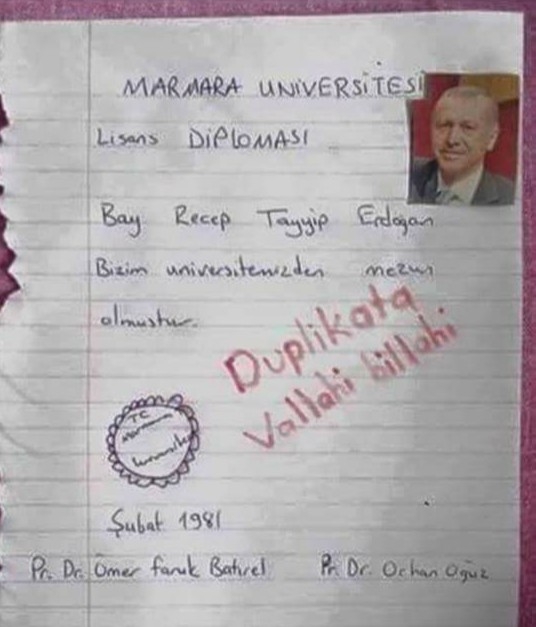 MARMARA UNİVERSİTESİ
Lisans DİPLOMASI
Bay Recep Tayyip Erdoğan
Bizim universitemizden mezun
olmustur.
Duplikata
Vallahi billahi
TC
Marmara
Universitesi
Şubat 1981
Pr. Dr. Ömer faruk Batırel Pr. Dr. Orhan Oğuz